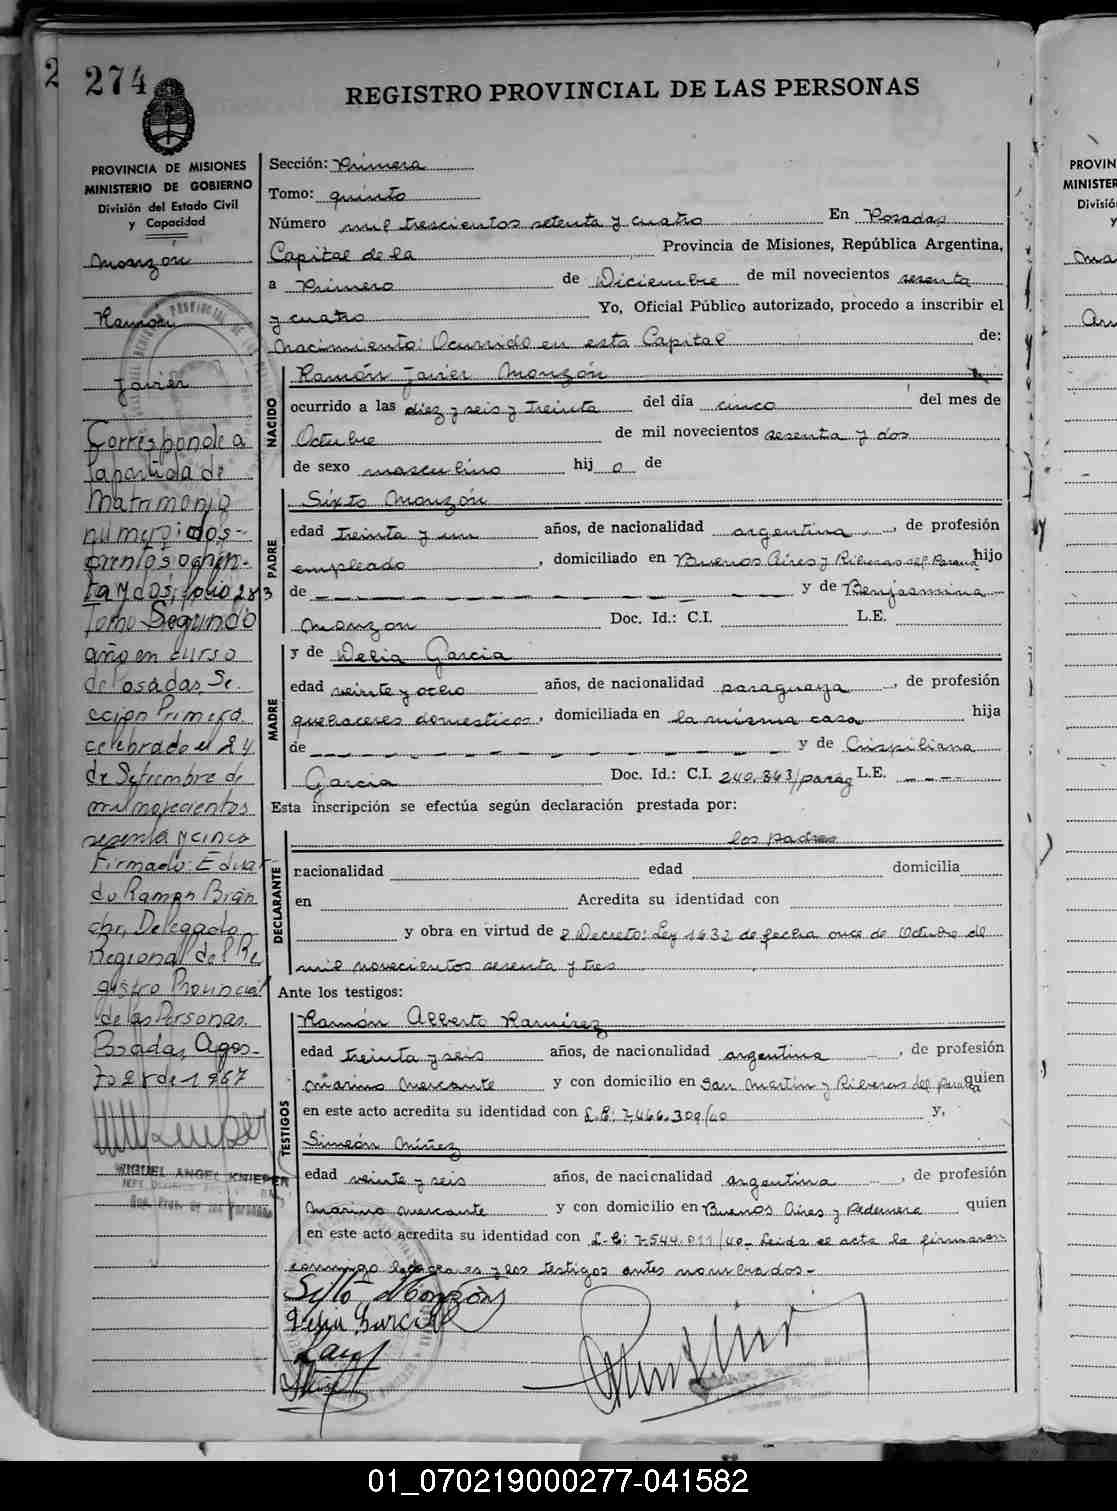 274
REGISTRO PROVINCIAL DE LAS PERSONAS
PROVINCIA DE MISIONES
MINISTERIO DE GOBIERNO
División del Estado Civil
y Capacidad
Monzón
Ramón
Javier
Corresponde a
la partida de
Matrimonio
numero dos-
cientos ochen-
ta y dos, folio 283
Tomo Segundo
año en curso
de Posadas, Se.
cción Primera,
celebrado el 24
de Setiembre de
mil novecientos
sesenta y cinco
Firmado: Eduar-
do Ramon Bian
chi, Delegado
Regional del Re
gistro Provincial
de las Personas.
Posadas, Agos-
to 28 de 1967
MIGUEL ANGEL KNIEPER
Sección: Primera
Tomo: quinto
Número mil trescientos setenta y cuatro En Posadas
Capital de la Provincia de Misiones, República Argentina,
a Primero de Diciembre de mil novecientos sesenta
y cuatro Yo, Oficial Público autorizado, procedo a inscribir el
Nacimiento: Ocurrido en esta Capital de:
NACIDO
Ramón Javier Monzón
ocurrido a las diez y seis y treinta del día cinco del mes de
Octubre de mil novecientos sesenta y dos
de sexo masculino hij o de
PADRE
Sixto Monzón
edad treinta y un años, de nacionalidad argentina, de profesión
empleado, domiciliado en Buenos Aires y Riberas del Paraná hijo
de y de Benjasmina
Monzon Doc. Id.: C.I. L.E.
MADRE
y de Delia Garcia
edad veinte y ocho años, de nacionalidad paraguaya, de profesión
quehaceres domesticos, domiciliada en la misma casa hija
de y de Crispiliana
Garcia Doc. Id.: C.I. 240.363/parag L.E.
Esta inscripción se efectúa según declaración prestada por:
DECLARANTE
los padres
racionalidad edad domicilia
en Acredita su identidad con
y obra en virtud de 2 Decreto: Ley 1632 de fecha once de Octubre de
mil novecientos sesenta y tres
Ante los testigos:
TESTIGOS
Ramón Alberto Ramirez
edad treinta y seis años, de nacionalidad argentina, de profesión
Marino Mercante y con domicilio en San Martin y Riberas del Paraná quien
en este acto acredita su identidad con L.E: 7,466.309/40 y,
Simeón Núñez
edad veinte y seis años, de nacionalidad argentina, de profesión
Marino Mercante y con domicilio en Buenos Aires y Pedernera quien
en este acto acredita su identidad con L.E: 7.544.011/40- Leida el acta la firmaron
conmigo los padres y los testigos antes nombrados.-
Sixto Monzón
Delia Garcia
01_070219000277-041582